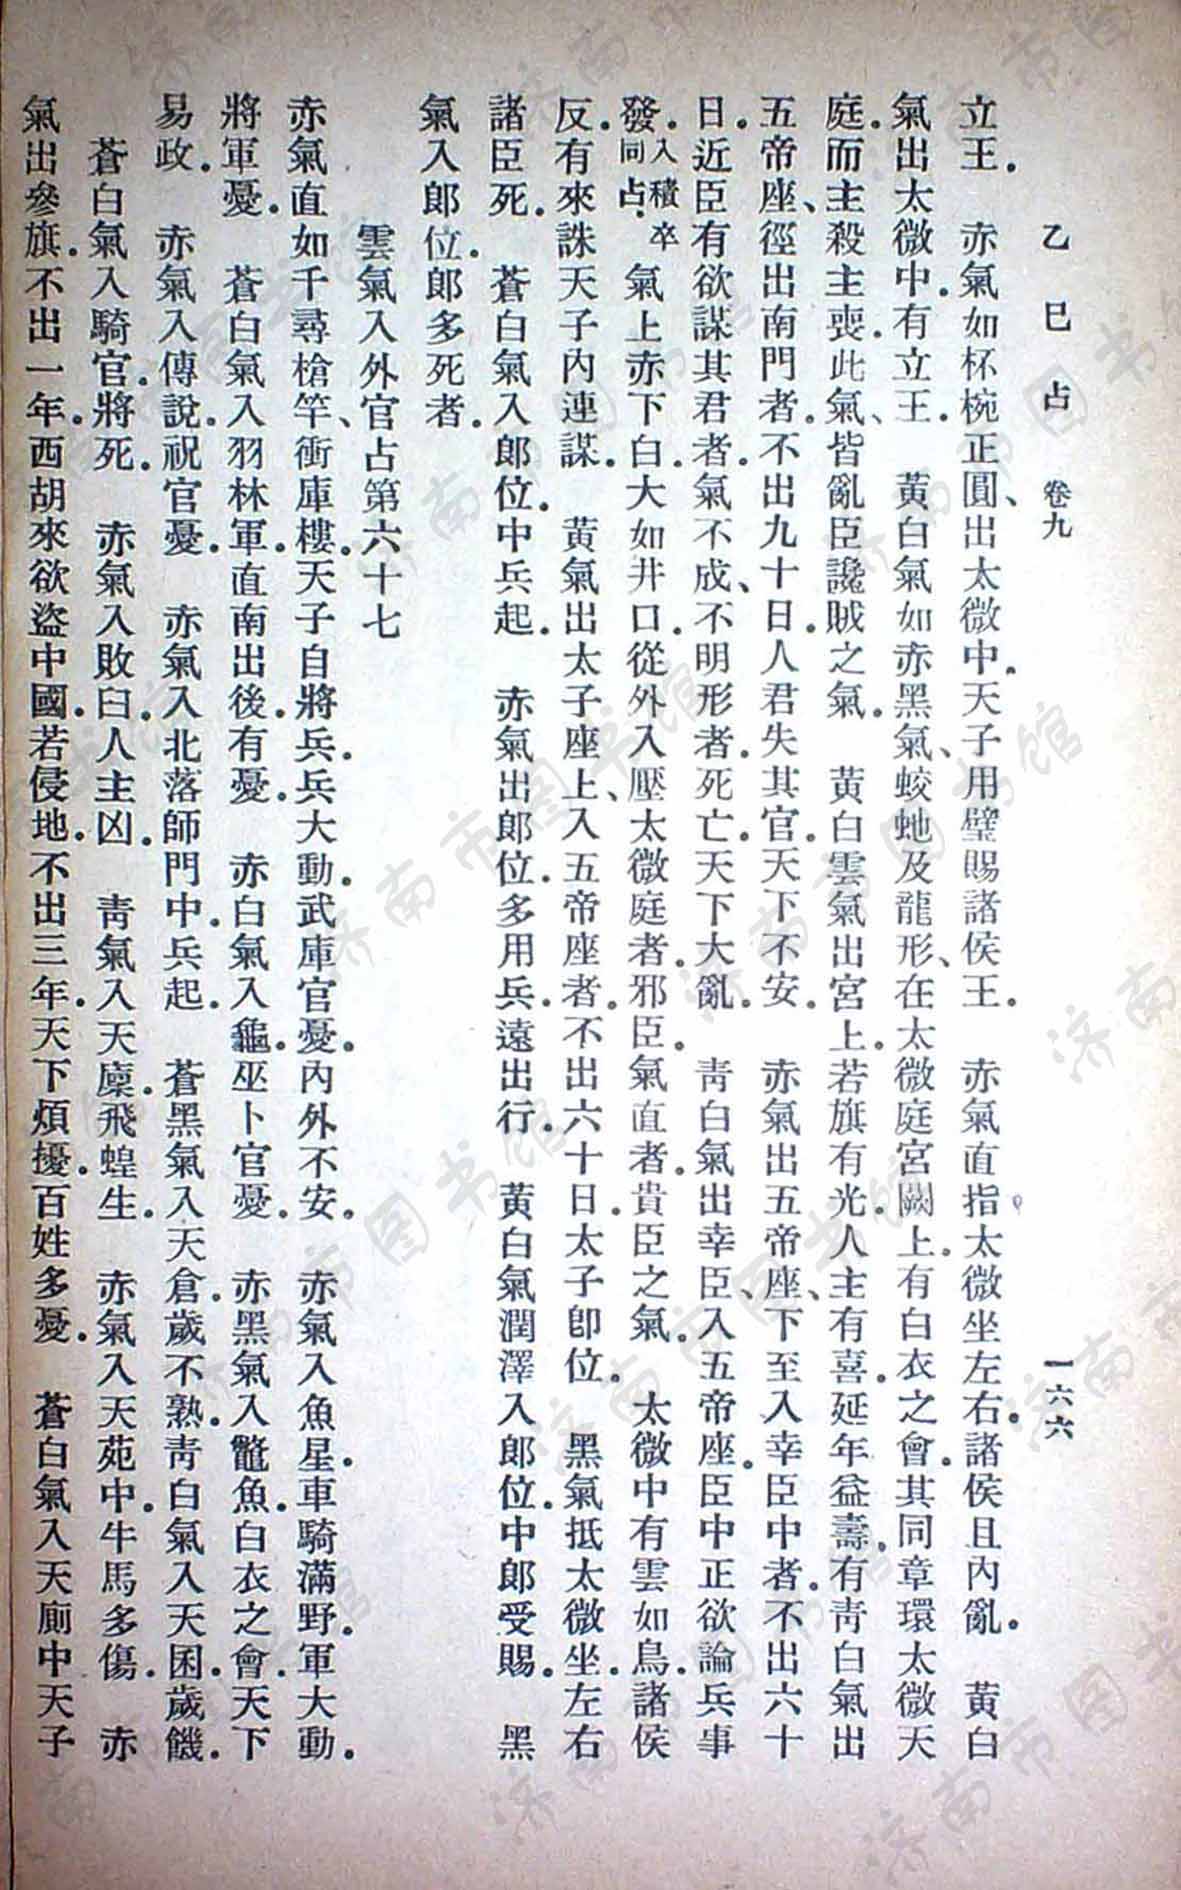 乙巳占 卷九 一六六
立王．　赤氣如杯椀正圓、出太微中．天子用璧賜諸侯王．　赤氣直指太微坐左右．諸侯且內亂．　黃白
氣出太微中．有立王．　黃白氣如赤黑氣、蛟虵及龍形、在太微庭宮闕上．有白衣之會．其同章環太微天
庭．而主殺主喪．此氣、皆亂臣讒賊之氣．　黃白雲氣出宮上．若旗有光．人主有喜．延年益壽．有靑白氣出
五帝座、徑出南門者．不出九十日．人君失其官．天下不安．　赤氣出五帝座、下至入幸臣中者．不出六十
日．近臣有欲謀其君者．氣不成、不明形者．死亡．天下大亂．　靑白氣出幸臣、入五帝座．臣中正欲論兵事
發．入積卒同占．　氣上赤下白．大如井口．從外入壓太微庭者．邪臣．氣直者．貴臣之氣．　太微中有雲如鳥．諸侯
反．有來誅天子內連謀．　黃氣出太子座上、入五帝座者．不出六十日．太子卽位．　黑氣抵太微坐．左右
諸臣死．　蒼白氣入郞位．中兵起．　赤氣出郞位．多用兵．遠出行．　黃白氣潤澤入郞位．中郞受賜．　黑
氣入郞位．郞多死者．
雲氣入外官占第六十七
赤氣直如千尋槍竿、衝庫樓．天子自將兵．兵大動．武庫官憂．內外不安．　赤氣入魚星．車騎滿野．軍大動．
將軍憂．　蒼白氣入羽林軍．直南出後．有憂．　赤白氣入龜．巫卜官憂．　赤黑氣入鼈魚．白衣之會．天下
易政．　赤氣入傳說．祝官憂．　赤氣入北落師門中．兵起．　蒼黑氣入天倉．歲不熟．靑白氣入天囷．歲饑．
蒼白氣入騎官．將死．　赤氣入敗臼．人主凶．　靑氣入天廩．飛蝗生．　赤氣入天苑中．牛馬多傷．　赤
氣出參旗．不出一年．西胡來欲盜中國．若侵地．不出三年．天下煩擾．百姓多憂．　蒼白氣入天廁中天子